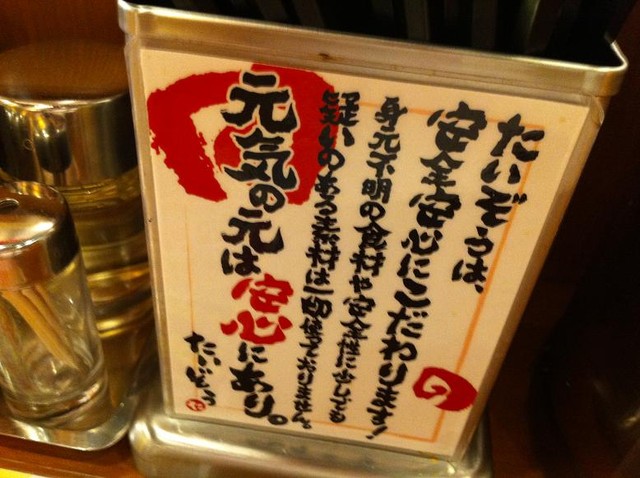 たいぞうは、
安全安心にこだわります！
身元不明の食材や安全性に少しでも
疑いのある素材は一切使っておりません。
元気の元は安心にあり。
たいぞう